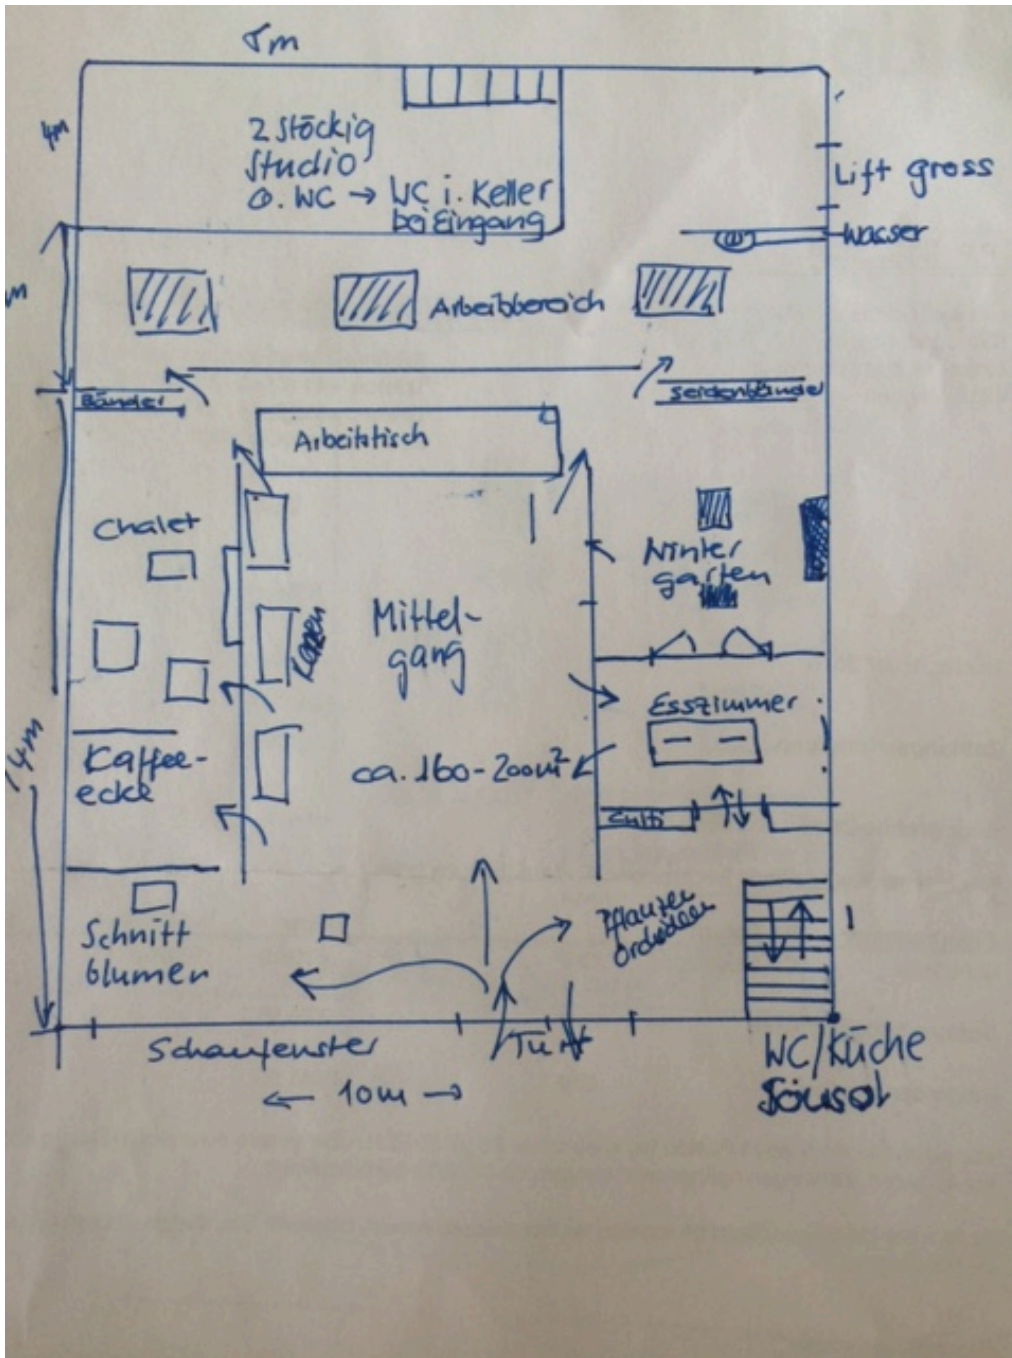 5m
4m
2 Stöckig
Studio
O. WC → WC i. Keller
bei Eingang
Lift gross
Wasser
m
Arbeitbereich
Bänder
Seidenbänder
Arbeitstisch
Chalet
Winter
garten
Mittel-
gang
Esszimmer
Kaffee-
ecke
ca. 160-200m²
14m
Schnitt
blumen
Pflanzen
Orchideen
Schaufenster
Tür
← 10m →
WC/Küche